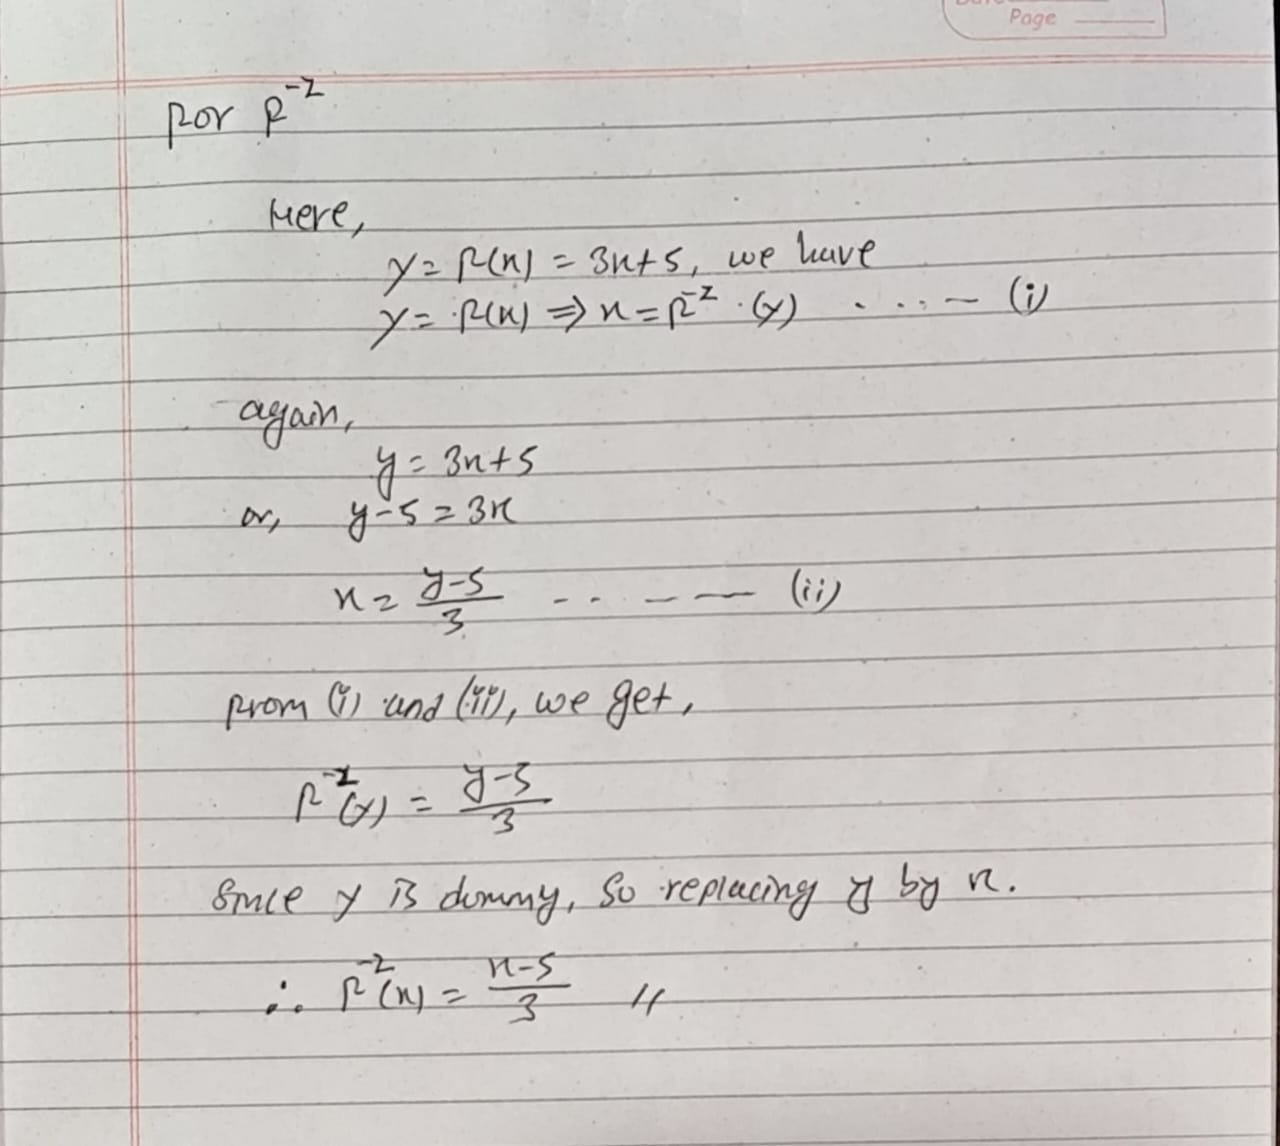 Page
for f⁻¹
Here,
y = f(x) = 3x+5, we have
y = f(x) ⇒ x = f⁻¹ · (y) ..... (i)
again,
y = 3x+5
or, y-5 = 3x
x = (y-5)/3 ..... (ii)
from (i) and (ii), we get,
f⁻¹(y) = (y-5)/3
Since y is dummy, so replacing y by x.
∴ f⁻¹(x) = (x-5)/3 //